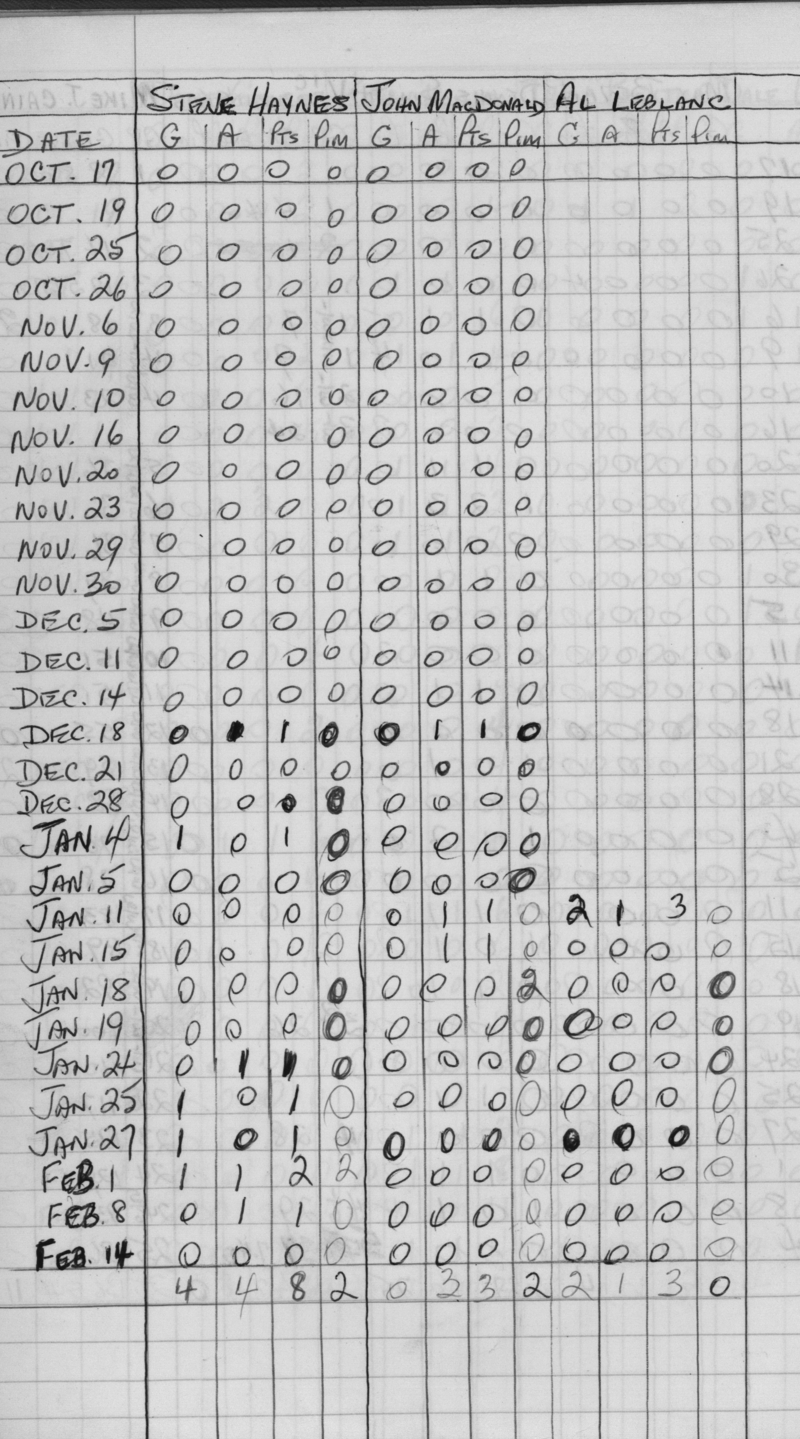 STEVE HAYNES JOHN MACDONALD AL LEBLANC
DATE G A Pts Pim G A Pts Pim G A Pts Pim
OCT. 17 0 0 0 0 0 0 0 0
OCT. 19 0 0 0 0 0 0 0 0
OCT. 25 0 0 0 0 0 0 0 0
OCT. 26 0 0 0 0 0 0 0 0
NOV. 6 0 0 0 0 0 0 0 0
NOV. 9 0 0 0 0 0 0 0 0
NOV. 10 0 0 0 0 0 0 0 0
NOV. 16 0 0 0 0 0 0 0 0
NOV. 20 0 0 0 0 0 0 0 0
NOV. 23 0 0 0 0 0 0 0 0
NOV. 29 0 0 0 0 0 0 0 0
NOV. 30 0 0 0 0 0 0 0 0
DEC. 5 0 0 0 0 0 0 0 0
DEC. 11 0 0 0 0 0 0 0 0
DEC. 14 0 0 0 0 0 0 0 0
DEC. 18 0 1 1 0 0 1 1 0
DEC. 21 0 0 0 0 0 0 0 0
DEC. 28 0 0 0 0 0 0 0 0
JAN. 4 1 0 1 0 0 0 0 0
JAN. 5 0 0 0 0 0 0 0 0
JAN. 11 0 0 0 0 0 1 1 0 2 1 3 0
JAN. 15 0 0 0 0 0 1 1 0 0 0 0 0
JAN. 18 0 0 0 0 0 0 0 2 0 0 0 0
JAN. 19 0 0 0 0 0 0 0 0 0 0 0 0
JAN. 24 0 1 1 0 0 0 0 0 0 0 0 0
JAN. 25 1 0 1 0 0 0 0 0 0 0 0 0
JAN. 27 1 0 1 0 0 0 0 0 0 0 0 0
FEB. 1 1 1 2 2 0 0 0 0 0 0 0 0
FEB. 8 0 1 1 0 0 0 0 0 0 0 0 0
FEB. 14 0 0 0 0 0 0 0 0 0 0 0 0
4 4 8 2 0 3 3 2 2 1 3 0